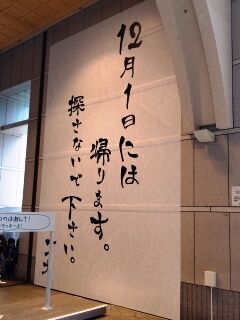 12月1日には
帰ります。
探さないで下さい。